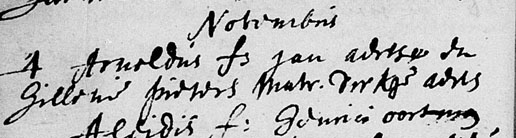 Novembris
4 Arnoldus fs jan adrs en
Gillenis pieters matr. Dirks adrs
Aleidis f: Henrici